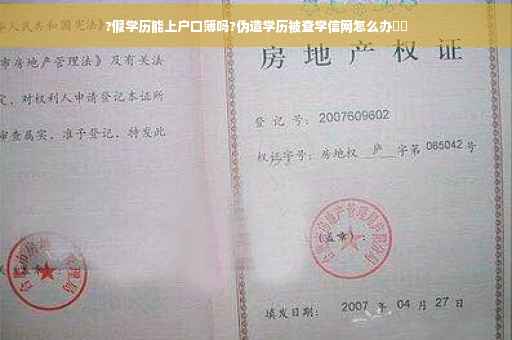 ?假学历能上户口薄吗?伪造学历被查学信网怎么办
人民共和国宪法》
市房地产管理法》及有关法
定，对权利人申请登记本证所
审查属实，准予登记，特发此
房地产权证
登记号：2007609602
权证字号：房地权 庐 字第 065042 号
(盖章)：
填发日期： 2007 年 04 月 27 日